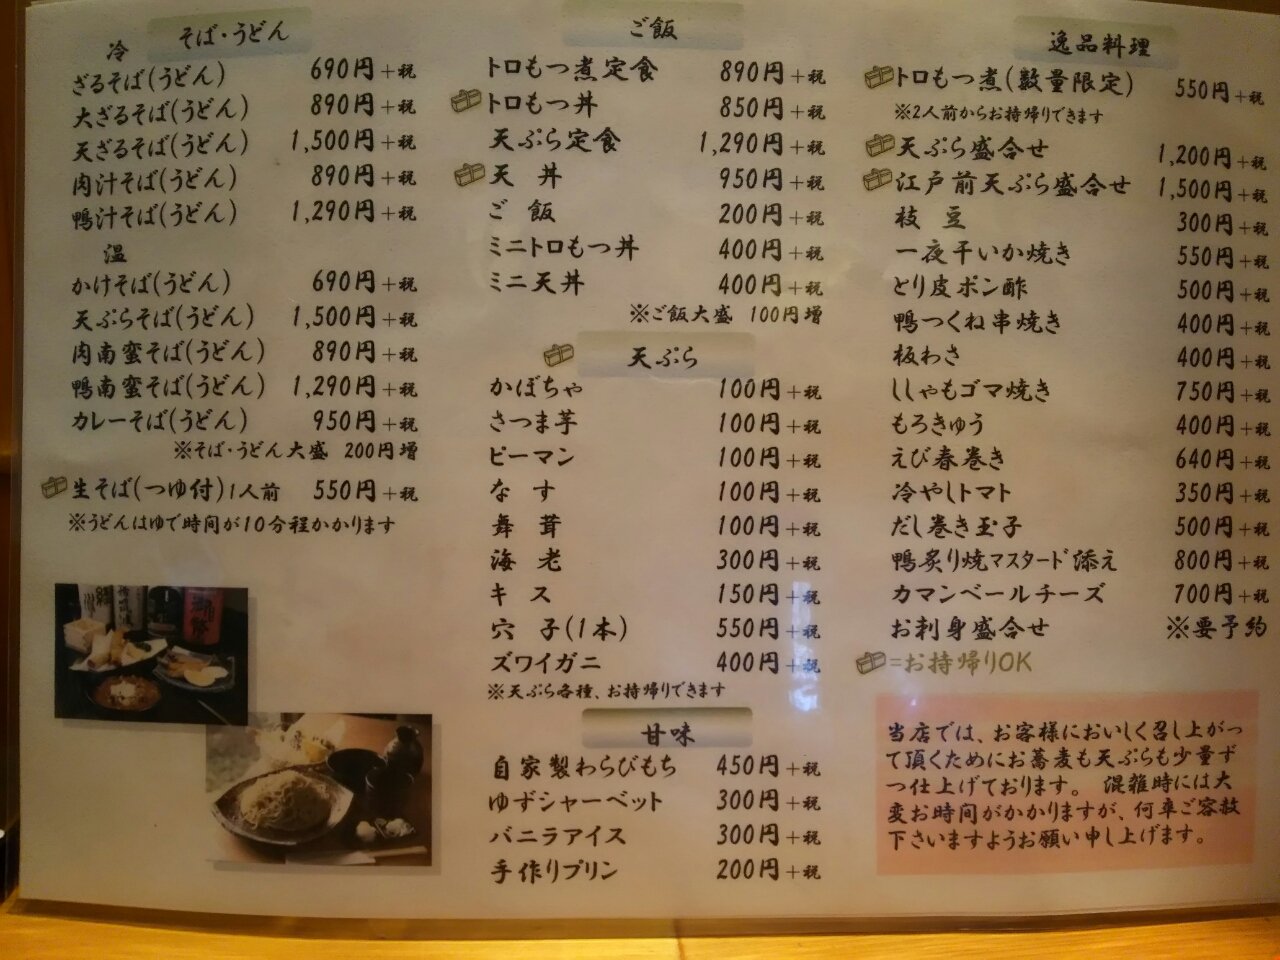 そば・うどん
冷
ざるそば(うどん) 690円+税
大ざるそば(うどん) 890円+税
天ざるそば(うどん) 1,500円+税
肉汁そば(うどん) 890円+税
鴨汁そば(うどん) 1,290円+税
温
かけそば(うどん) 690円+税
天ぷらそば(うどん) 1,500円+税
肉南蛮そば(うどん) 890円+税
鴨南蛮そば(うどん) 1,290円+税
カレーそば(うどん) 950円+税
※そば・うどん大盛 200円増
生そば(つゆ付)1人前 550円+税
※うどんはゆで時間が10分程かかります
ご飯
トロもつ煮定食 890円+税
トロもつ丼 850円+税
天ぷら定食 1,290円+税
天丼 950円+税
ご飯 200円+税
ミニトロもつ丼 400円+税
ミニ天丼 400円+税
※ご飯大盛 100円増
天ぷら
かぼちゃ 100円+税
さつま芋 100円+税
ピーマン 100円+税
なす 100円+税
舞茸 100円+税
海老 300円+税
キス 150円+税
穴子(1本) 550円+税
ズワイガニ 400円+税
※天ぷら各種、お持帰りできます
甘味
自家製わらびもち 450円+税
ゆずシャーベット 300円+税
バニラアイス 300円+税
手作りプリン 200円+税
逸品料理
トロもつ煮(数量限定) 550円+税
※2人前からお持帰りできます
天ぷら盛合せ 1,200円+税
江戸前天ぷら盛合せ 1,500円+税
枝豆 300円+税
一夜干いか焼き 550円+税
とり皮ポン酢 500円+税
鴨つくね串焼き 400円+税
板わさ 400円+税
ししゃもゴマ焼き 750円+税
もろきゅう 400円+税
えび春巻き 640円+税
冷やしトマト 350円+税
だし巻き玉子 500円+税
鴨炙り焼マスタード添え 800円+税
カマンベールチーズ 700円+税
お刺身盛合せ ※要予約
=お持帰りOK
当店では、お客様においしく召し上がっ
て頂くためにお蕎麦も天ぷらも少量ず
つ仕上げております。 混雑時には大
変お時間がかかりますが、何卒ご容赦
下さいますようお願い申し上げます。